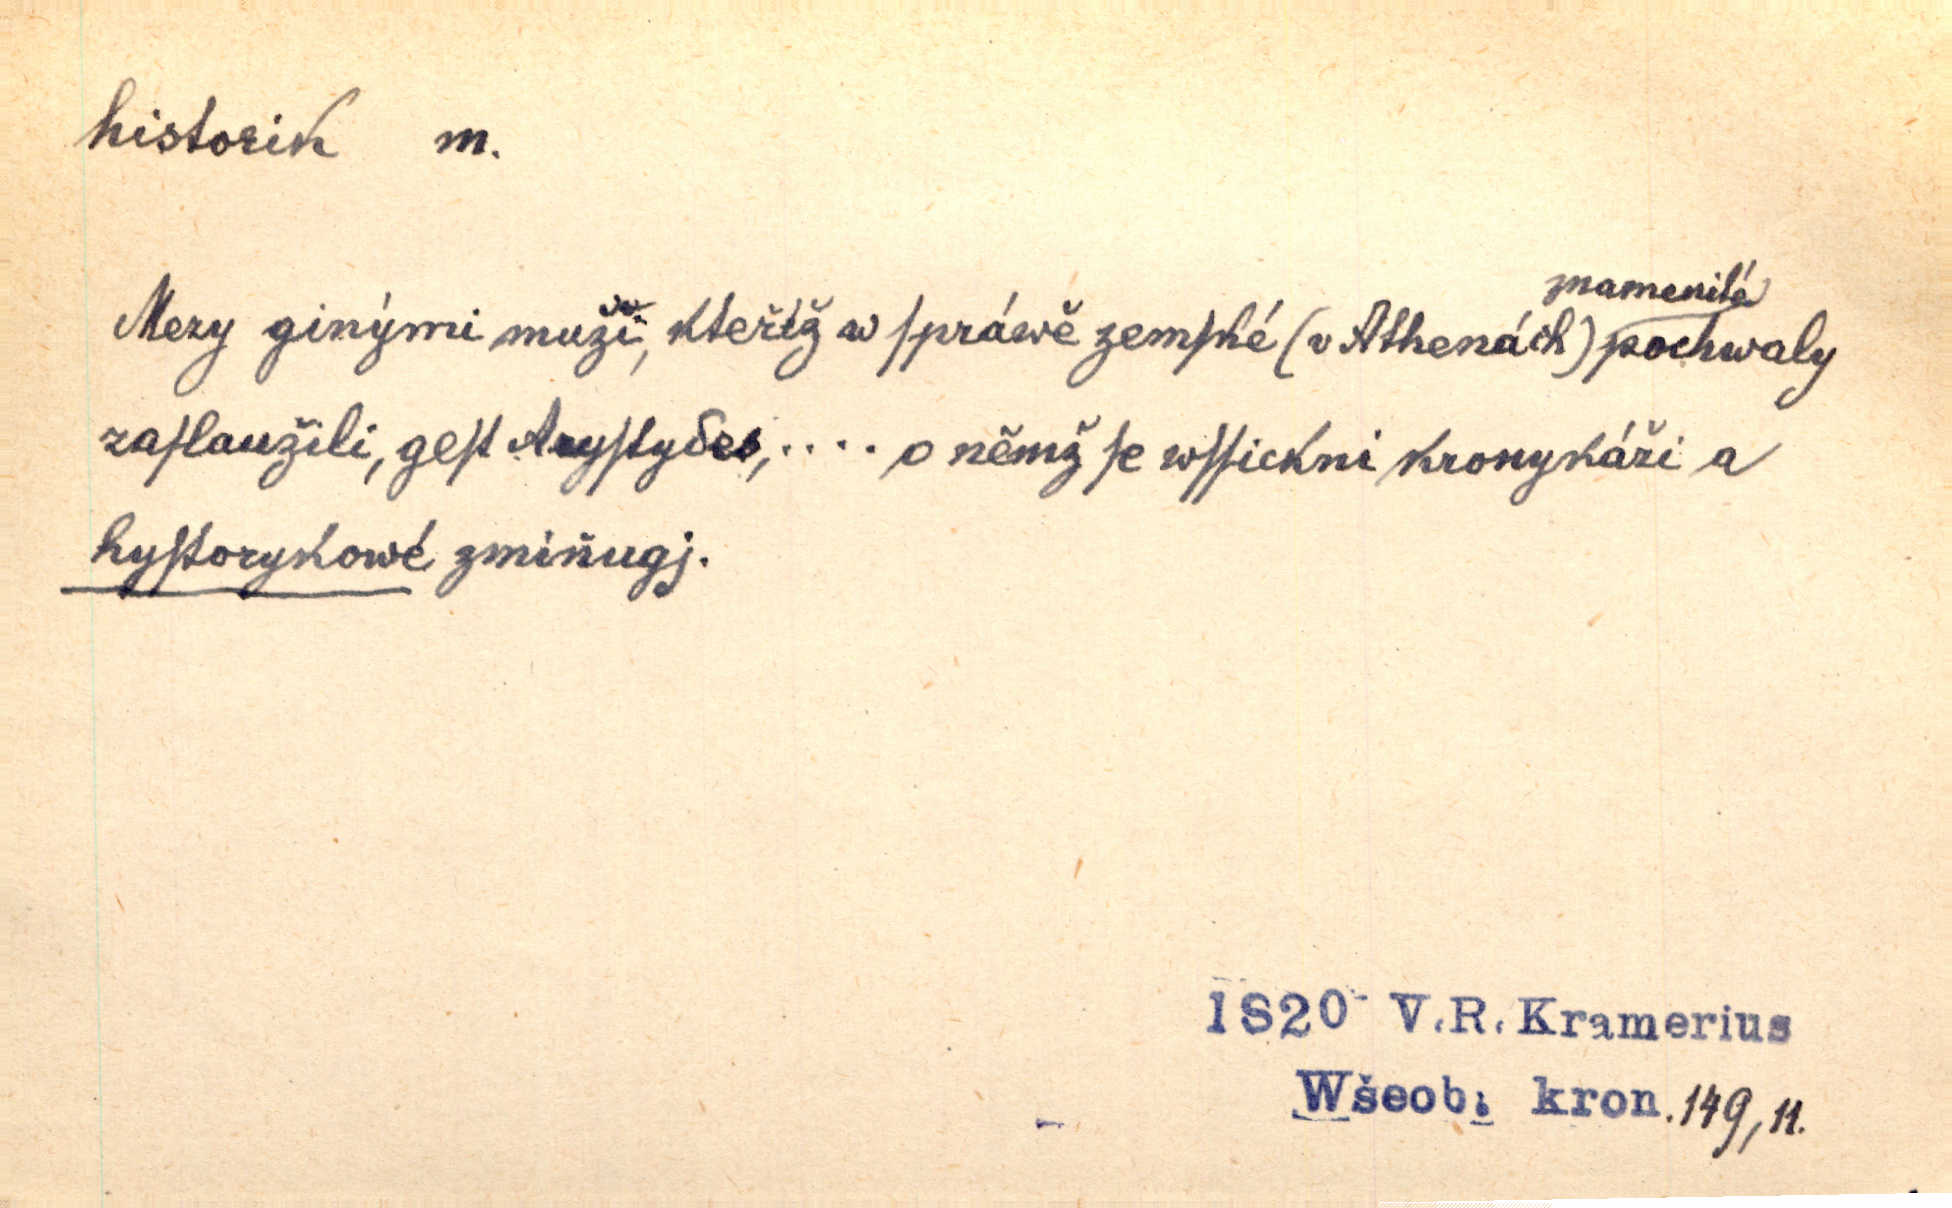 historik m.
Mezy ginými muži, kteřížž w ſpráwě zemſké (v Athenách) znamenité pochwaly
zaſlaužili, geſt Aryſtydes, .... o němž ſe wſſickni kronykáři a
hyſtorykowé zmiňugj.
1820 V.R. Kramerius
Wšeob. kron. 149, 11.